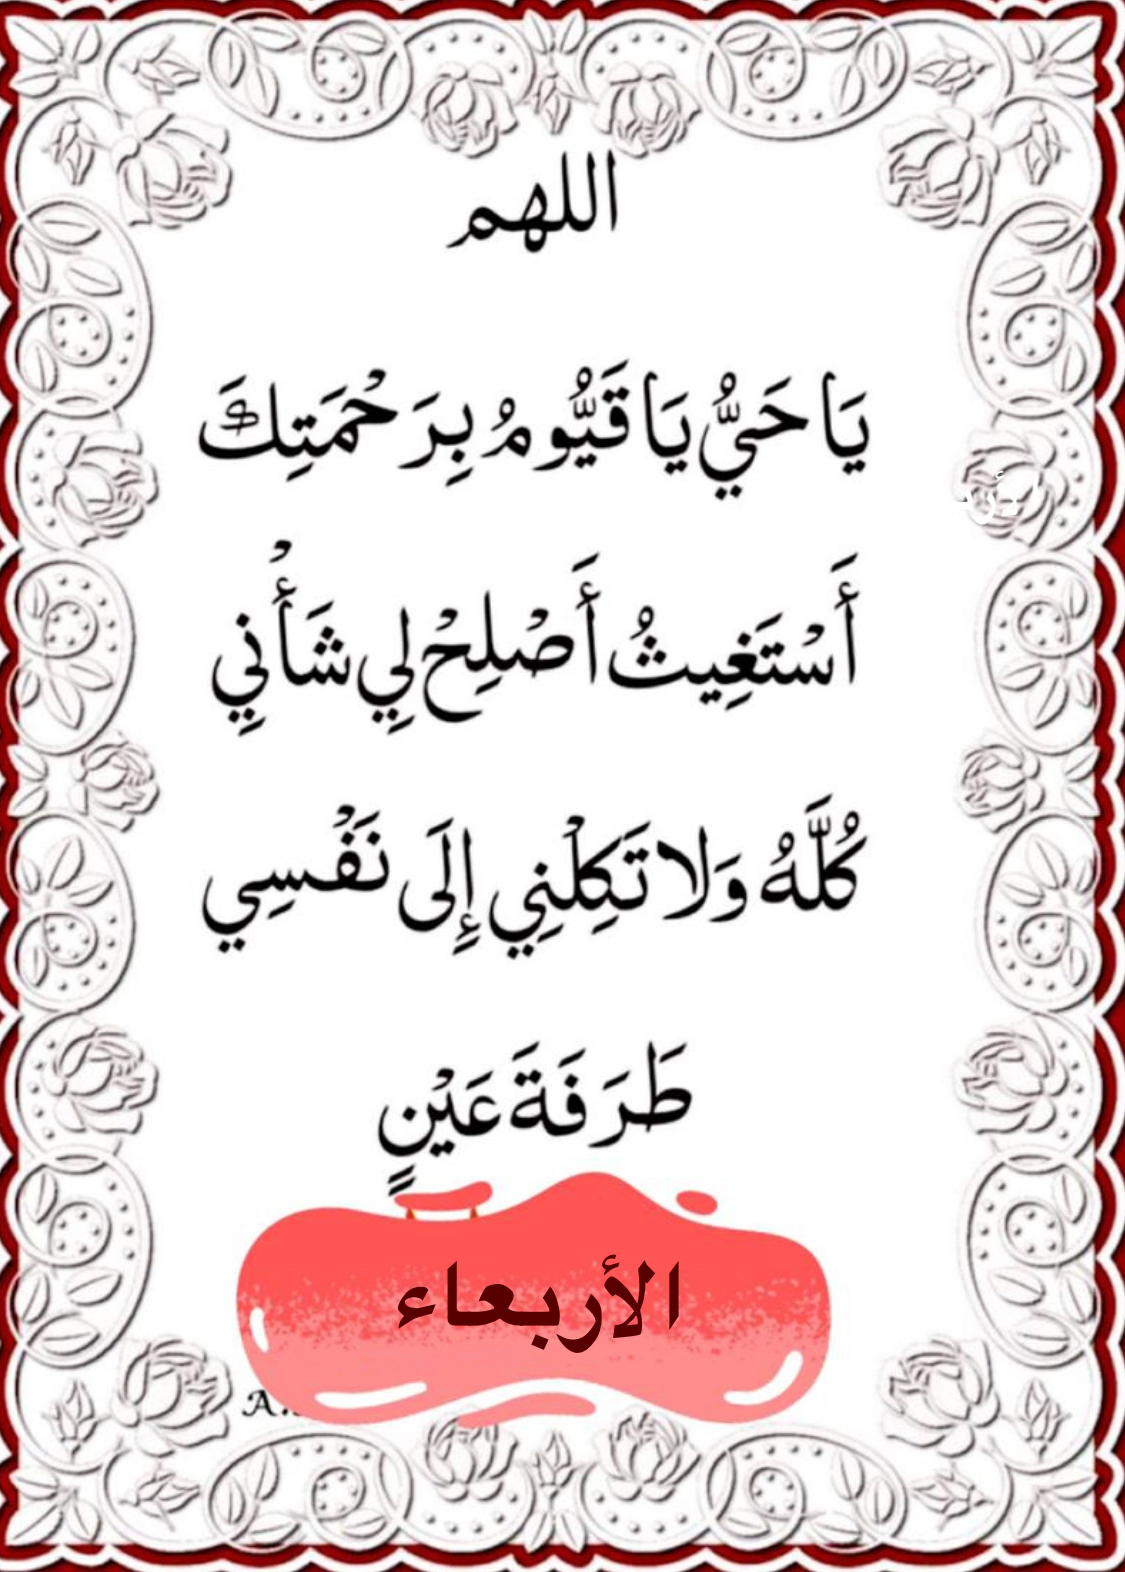 اللهم
يَا حَيُّ يَا قَيُّومُ بِرَحْمَتِكَ
أَسْتَغِيثُ أَصْلِحْ لِي شَأْنِي
كُلَّهُ وَلا تَكِلْنِي إِلَى نَفْسِي
طَرَفَةَ عَيْنٍ
الأربعاء